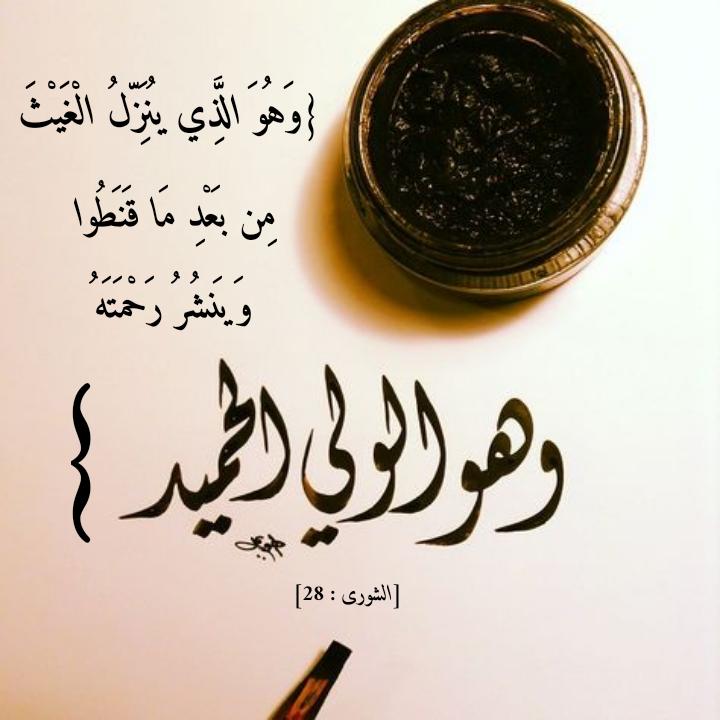 {وَهُوَ الَّذِي يُنَزِّلُ الْغَيْثَ
مِن بَعْدِ مَا قَنَطُوا
وَيَنشُرُ رَحْمَتَهُ
وهو الولي الحميد}
[الشورى : 28]